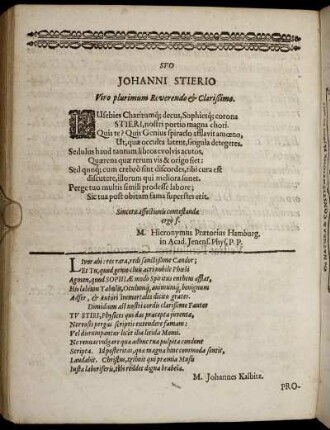 SVO
JOHANNI STIERIO
Viro plurimum Reverendo & Clarissimo.
EUsebies Charitumq; decus, Sophiesq; corona
STIERI, nostri portio magna chori.
Quis te? Quis Genius spiraclo afflavit amœno,
Ut, quæ occulta latent, singula detegeres.
Sedulus haud tantùm libros evolvis acutos,
Quærens quæ rerum vis & origo siet:
Sed quoq; cum crebrò sint discordes, tibi cura est
discutere, illorum qui meliora sonet.
Perge tuo multis simili prodesse labore;
Sic tua post obitum fama superstes erit.
Sinceræ affectionis contestandæ
ergò f.
M. Hieronymus Prætorius Hamburg.
in Acad. Jenens. Phys. P. P.
LIvor abi: res rara, redi sanctissime Candor;
Et Tu, quod genio
Agmen, quod SOPHIÆ modo Spiritus entheus afflat,
His labeum Tabulis, Oculumq;, animumq;, benignum
Adfer, & Autori Immortales dicito grates.
Dimidium alt nostri cordis clarissime Fautor
TV STIRI, Physices qui das præcepta perenta,
Nervosis pergas scriptis extendere famam:
Vel dirumpantur licet ilia livida Momi.
Ne remorulugare qua adhuc tua pulpita condunt
Scripta. Id posteritas, quæ magna hinc commoda sentit,
Laudabit. Christus, tribuit qui præmia Musis
Iusta laboriferis, tibi reddet digna brabeia.
M. Johannes Kaibitz.
PRO-